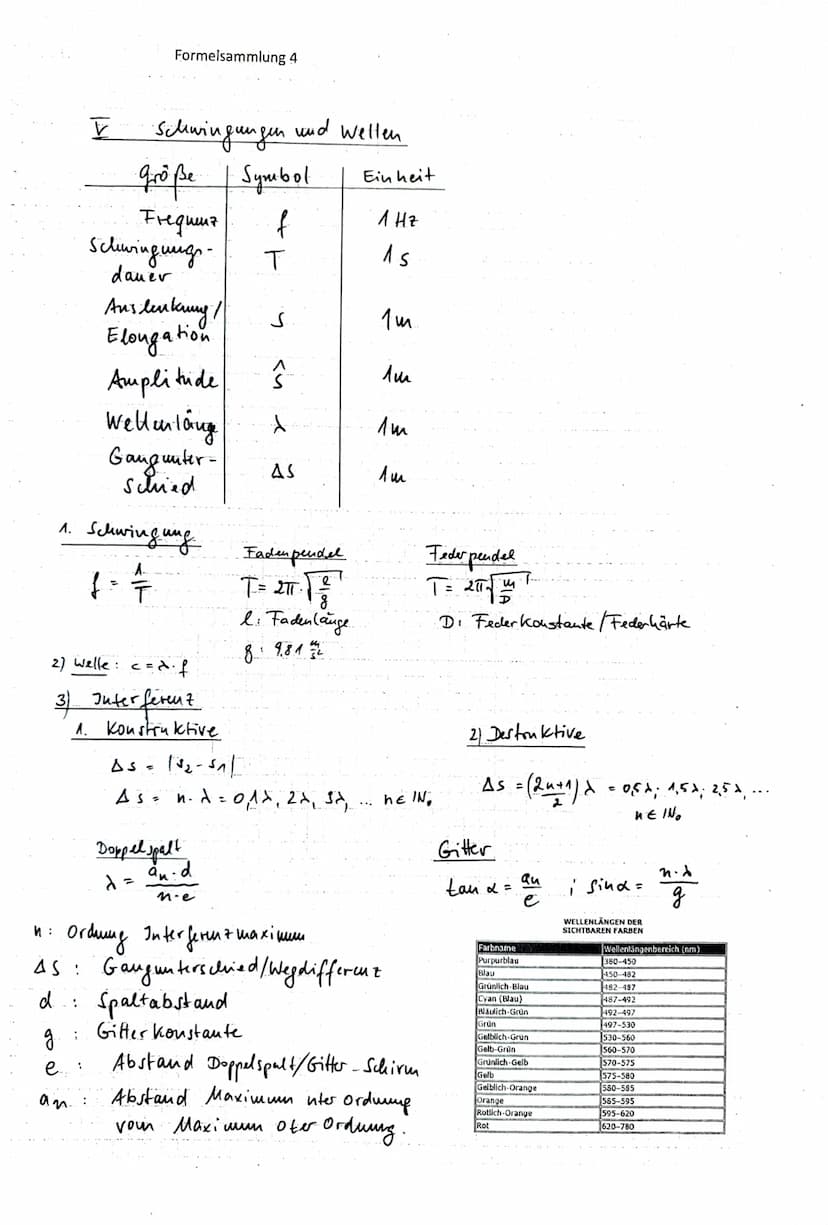 Formelsammlung 4
V Schwingungen und Wellen
Größe Symbol Einheit
Frequenz f 1 Hz
Schwingungs-
dauer T 1 s
Auslenkung /
Elongation s 1 m
Amplitude ŝ 1 m
Wellenläng λ 1 m
Gangunter-
schied Δs 1 m
1. Schwingung
f = 1/T
Fadenpendel
T = 2π · √(l/g)
l: Fadenlänge
g: 9,81 m/s²
Federpendel
T = 2π √(m/D)
D: Federkonstante / Federhärte
2) Welle: c = λ · f
3) Interferenz
1. Konstruktive
Δs = |s₂ - s₁|
Δs = n · λ = 0, 1λ, 2λ, 3λ, ... n ∈ ℕ₀
2) Destruktive
Δs = ((2n+1)/2) λ = 0,5λ; 1,5λ; 2,5λ, ...
n ∈ ℕ₀
Doppelspalt
λ = (aₙ · d)/(n · e)
Gitter
tan α = aₙ/e ; sin α = (n · λ)/g
n: Ordnung Interferenzmaximum
Δs: Gangunterschied/Wegdifferenz
d: Spaltabstand
g: Gitterkonstante
e: Abstand Doppelspalt/Gitter - Schirm
aₙ: Abstand Maximum nter Ordnung
vom Maximum 0ter Ordnung.
WELLENLÄNGEN DER
SICHTBAREN FARBEN
Farbname Wellenlängenbereich (nm)
Purpurblau 380-450
Blau 450-482
Grünlich-Blau 482-487
Cyan (Blau) 487-492
Bläulich-Grün 492-497
Grün 497-530
Gelblich-Grün 530-560
Gelb-Grün 560-570
Grünlich-Gelb 570-575
Gelb 575-580
Gelblich-Orange 580-585
Orange 585-595
Rötlich-Orange 595-620
Rot 620-780